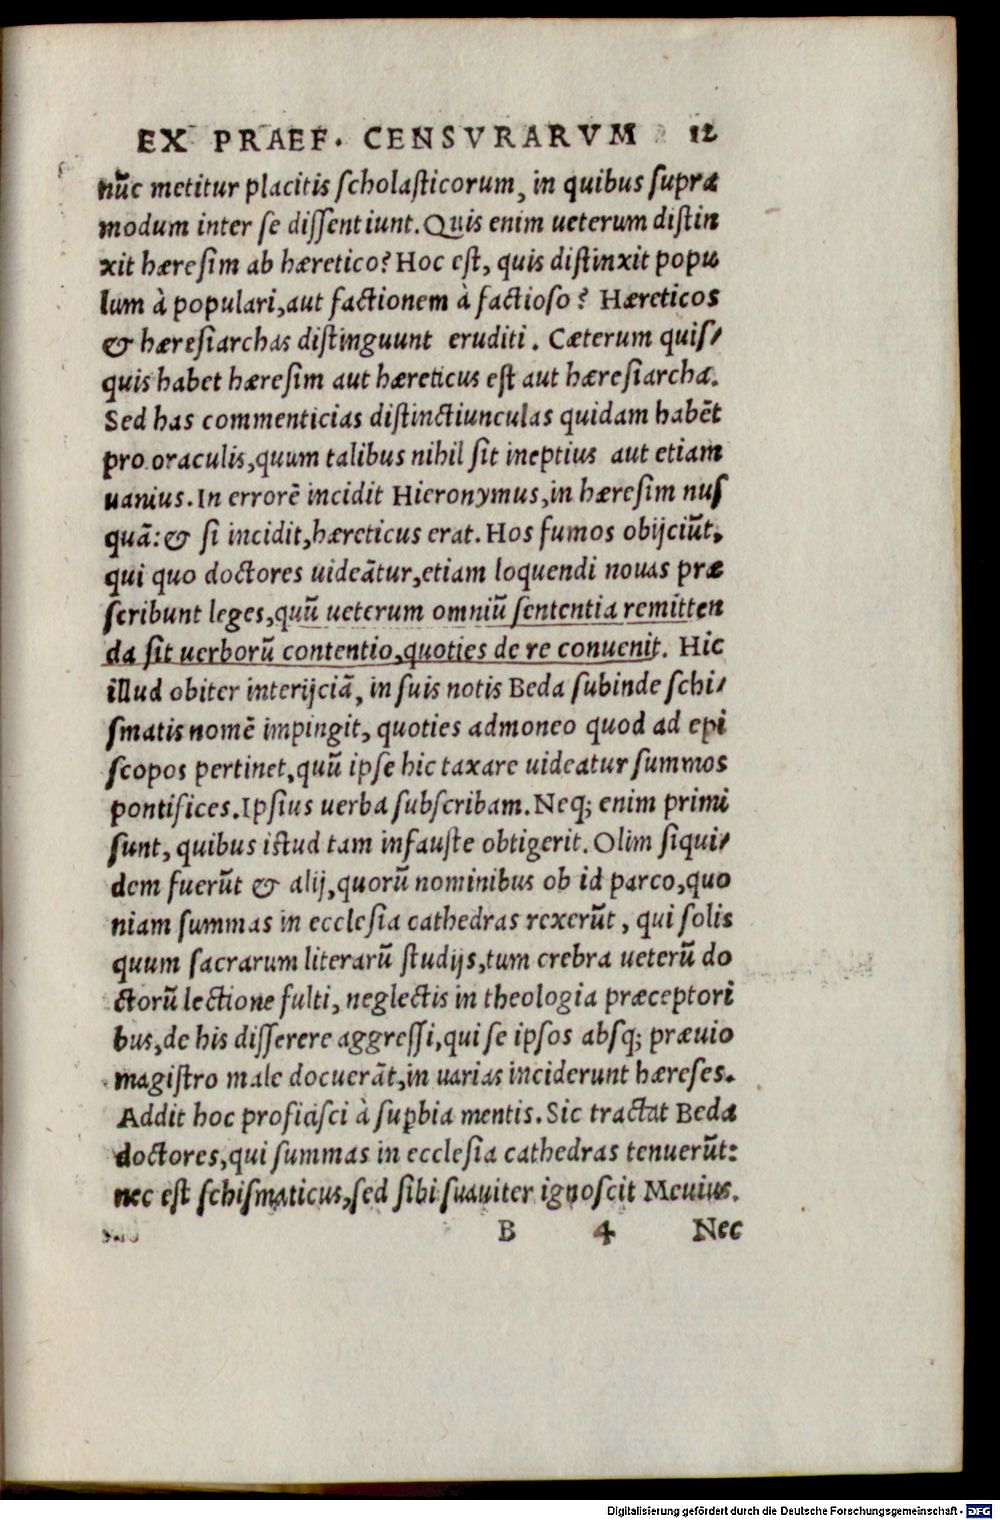 EX PRAEF. CENSVRARVM 12
nūc metitur placitis scholasticorum, in quibus supra
modum inter se dissentiunt. Quis enim ueterum distin
xit hæresim ab hæretico? Hoc est, quis distinxit popu
lum à populari, aut factionem à factioso? Hæreticos
& hæresiarchas distinguunt eruditi. Cæterum quis/
quis habet hæresim aut hæreticus est aut hæresiarcha.
Sed has commenticias distinctiunculas quidam habēt
pro oraculis, quum talibus nihil sit ineptius aut etiam
uanius. In errorē incidit Hieronymus, in hæresim nus
quā: & si incidit, hæreticus erat. Hos fumos obijciūt,
qui quo doctores uideātur, etiam loquendi nouas præ
scribunt leges, quū ueterum omniū sententia remitten
da sit uerborū contentio, quoties de re conuenit. Hic
illud obiter interijciā, in suis notis Beda subinde schi/
smatis nomē impingit, quoties admoneo quod ad epi
scopos pertinet, quū ipse hic taxare uideatur summos
pontifices. Ipsius uerba subscribam. Neq; enim primi
sunt, quibus istud tam infauste obtigerit. Olim siqui/
dem fuerūt & alij, quorū nominibus ob id parco, quo
niam summas in ecclesia cathedras rexerūt, qui solis
quum sacrarum literarū studijs, tum crebra ueterū do
ctorū lectione fulti, neglectis in theologia præceptori
bus, de his disserere aggressi, qui se ipsos absq; præuio
magistro male docuerāt, in uarias inciderunt hæreses.
Addit hoc proficisci à supbia mentis. Sic tractat Beda
doctores, qui summas in ecclesia cathedras tenuerūt:
nec est schismaticus, sed sibi suauiter ignoscit Meuius.
B 4 Nec
Digitalisierung gefördert durch die Deutsche Forschungsgemeinschaft - DFG